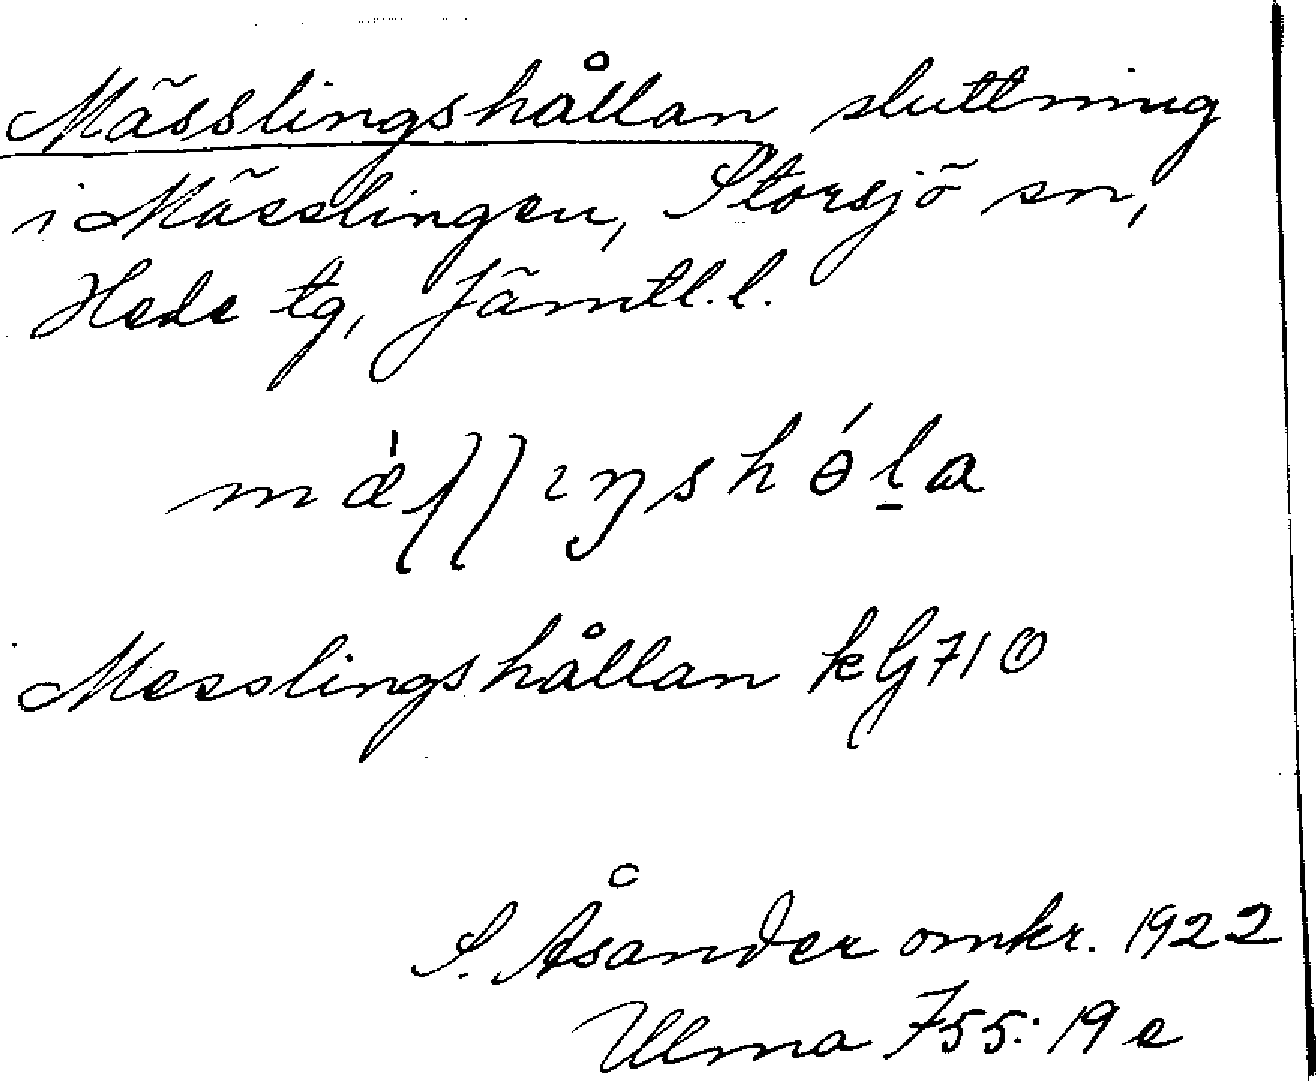 Mässlingshållan sluttning
i Mässlingen, Storsjö sn,
Hede tg, Jämtl. l.
mæ̀ʃʃıŋshɵ́l̠a
Messlingshållan kG 71 Ö
S. Åsander omkr. 1922
Ulma 755: 19 e